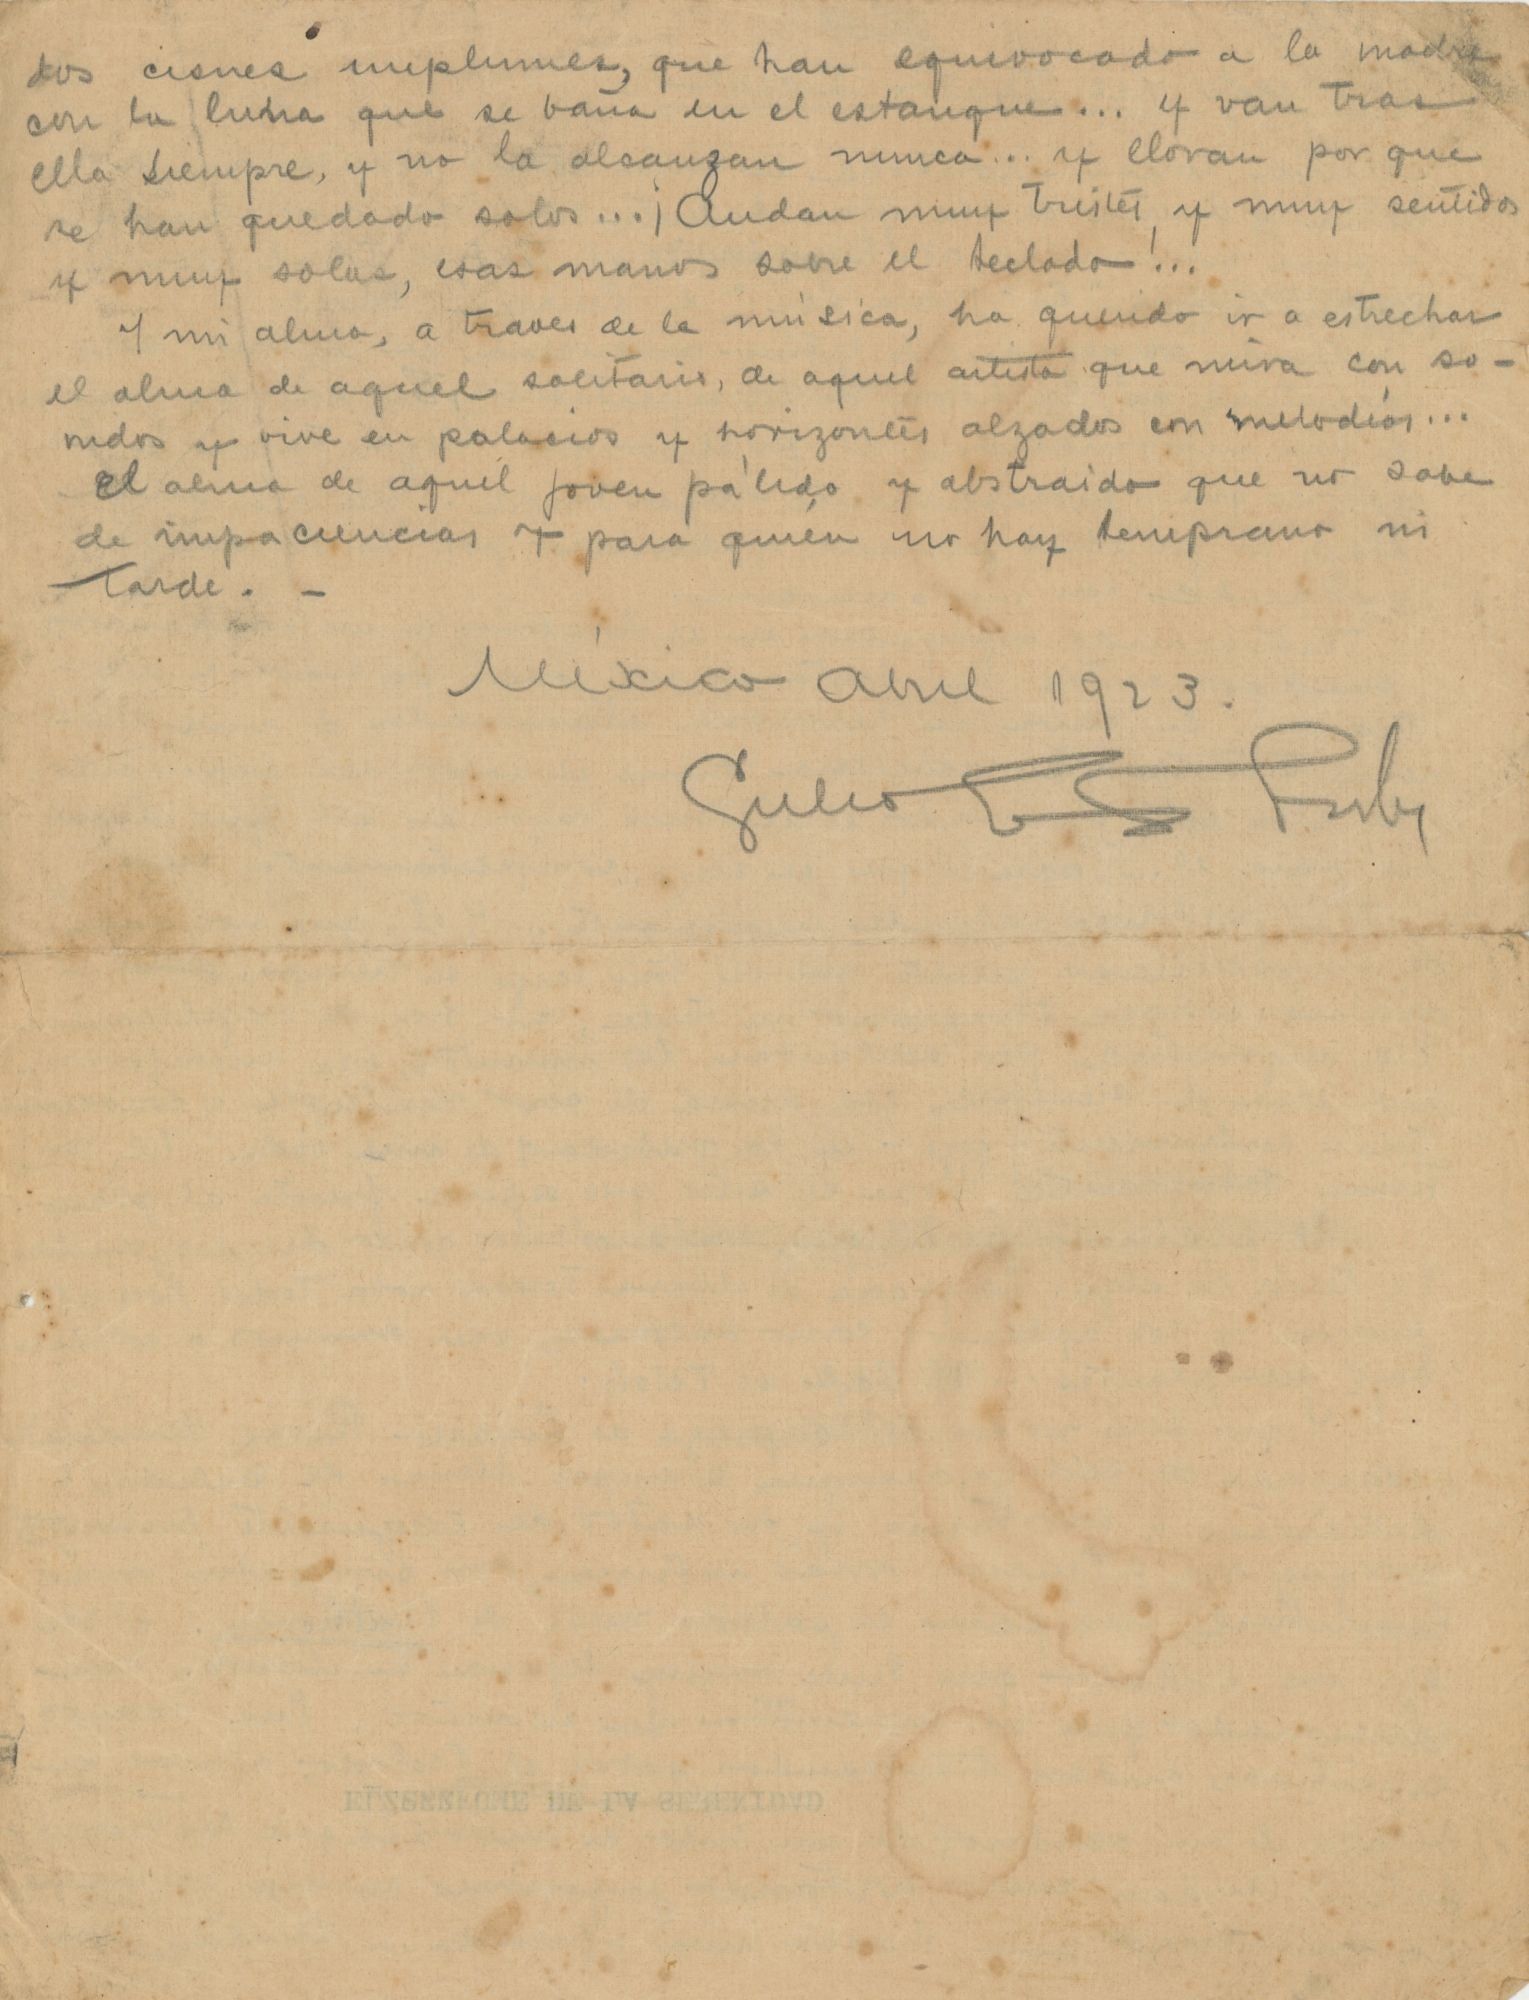 dos cisnes implumes, que han equivocado a la madre
con la luna que se baña en el estanque... y van tras
ella siempre, y no la alcanzan nunca... y lloran por que
se han quedado solos...¡Andan muy tristes, y muy sentidos
y muy solas, esas manos sobre el teclado!...
Y mi alma, a traves de la música, ha querido ir a estrechar
el alma de aquel solitario, de aquel artista que mira con so-
nidos y vive en palacios y horizontes alzados con melodías...
El alma de aquel joven pálido y abstraido que no sabe
de impaciencias y para quién no hay temprano ni
tarde. -
México Abril 1923.